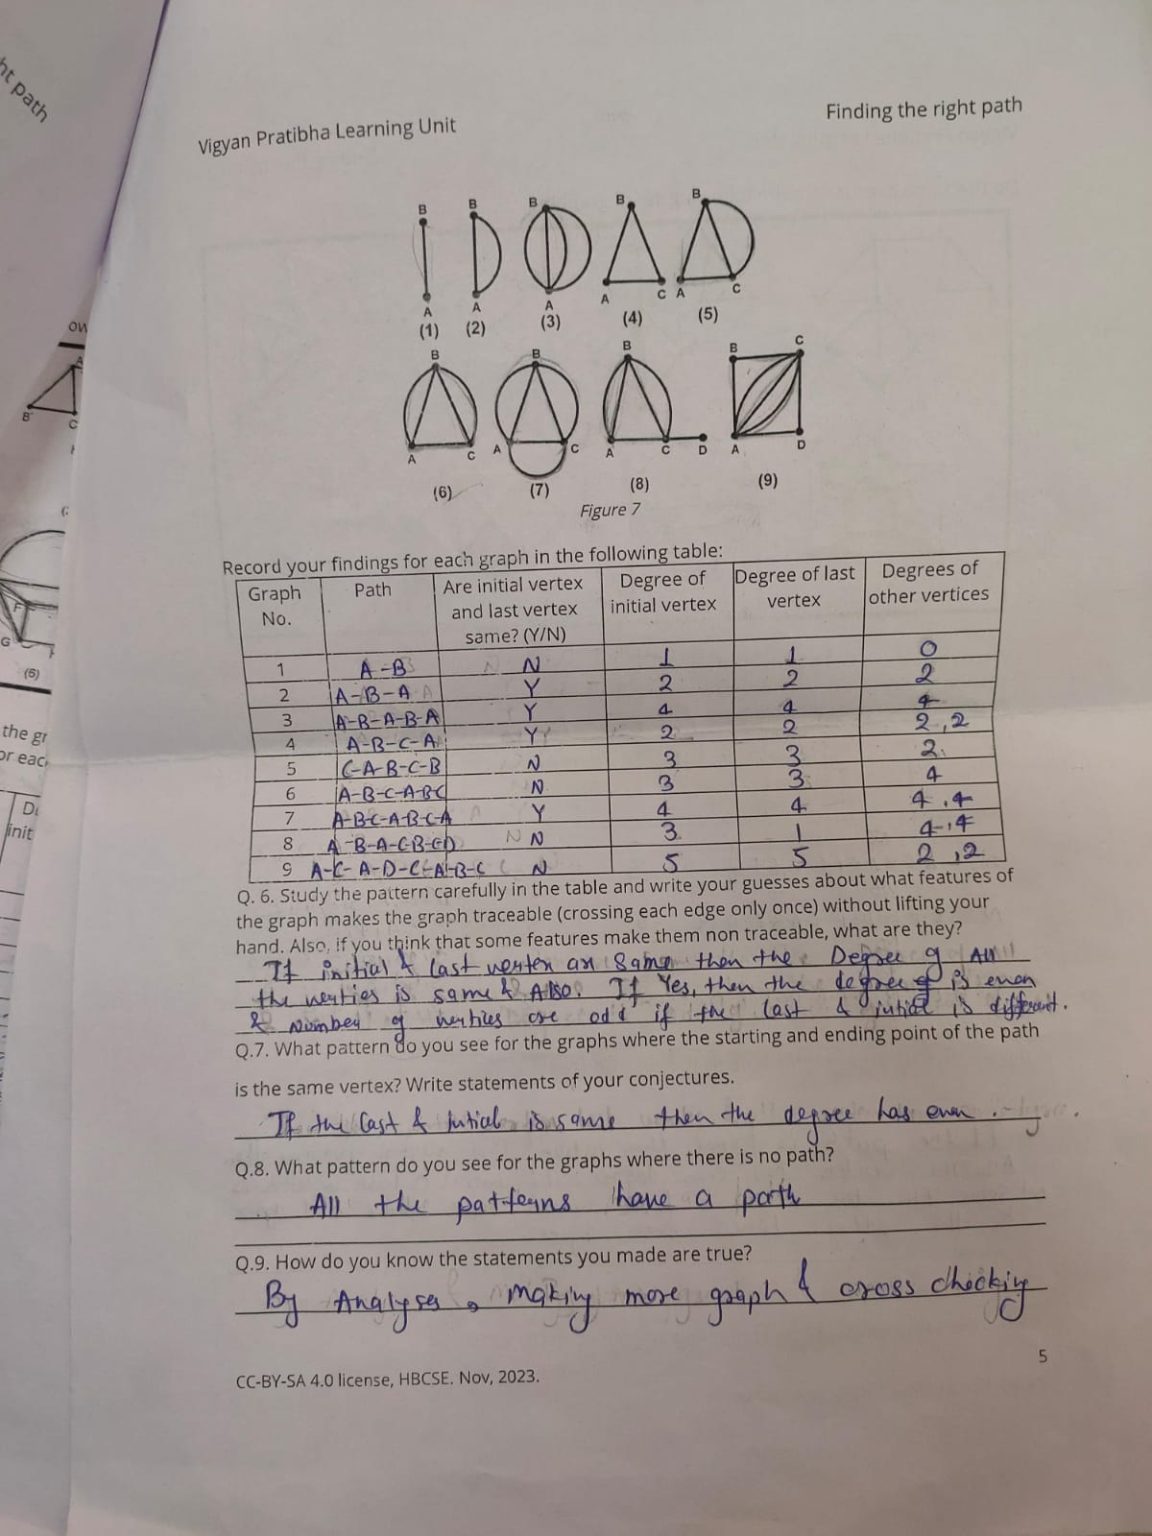 ht path
Vigyan Pratibha Learning Unit
Finding the right path
B B B B B
A A A A C A C
(1) (2) (3) (4) (5)
B B B B C
A C A C A C D A D
(6) (7) (8) (9)
Figure 7
Record your findings for each graph in the following table:
Graph No. Path Are initial vertex and last vertex same? (Y/N) Degree of initial vertex Degree of last vertex Degrees of other vertices
1 A-B N 1 1 0
2 A-B-A Y 2 2 2
3 A-B-A-B-A Y 4 4 4
4 A-B-C-A Y 2 2 2,2
5 C-A-B-C-B N 3 3 2
6 A-B-C-A-BC N 3 3 4
7 A-B-C-A-B-C-A Y 4 4 4,4
8 A-B-A-CB-CD N N 3 1 4,4
9 A-C-A-D-C-A-B-C N 5 5 2,2
Q. 6. Study the pattern carefully in the table and write your guesses about what features of
the graph makes the graph traceable (crossing each edge only once) without lifting your
hand. Also, if you think that some features make them non traceable, what are they?
If initial & last vertex are Same then the Degree of All
the verties is same & Also. If Yes, then the degree of is even
& Number of vertices are odd if the last & intial is different.
Q.7. What pattern do you see for the graphs where the starting and ending point of the path
is the same vertex? Write statements of your conjectures.
If the last & Intial is same then the degree has even.
Q.8. What pattern do you see for the graphs where there is no path?
All the patterns have a path
Q.9. How do you know the statements you made are true?
By Analyses, making more graph & cross checking
5
CC-BY-SA 4.0 license, HBCSE. Nov, 2023.
ow
A
B
C
F
G
(5)
the gr
or each
init